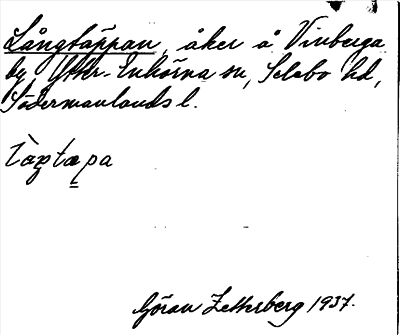 Långtäppan, åker å Vinberga
by, Ytter-Enhörna sn, Selebo hd,
Södermanlands l.
Göran Zetterberg 1937.